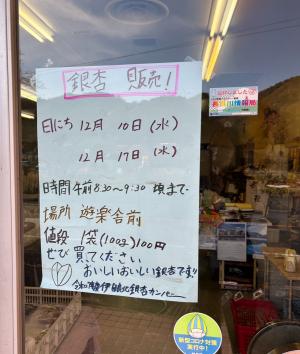 銀杏 販売!
日にち 12月 10日(水)
12月 17日(水)
時間 午前8:30〜9:30 頃まで
場所 遊楽舎前
値段 1袋(100g)100円
ぜひ 買てください
おいしいおいしい銀杏です!!
新型コロナ対策
実行中!